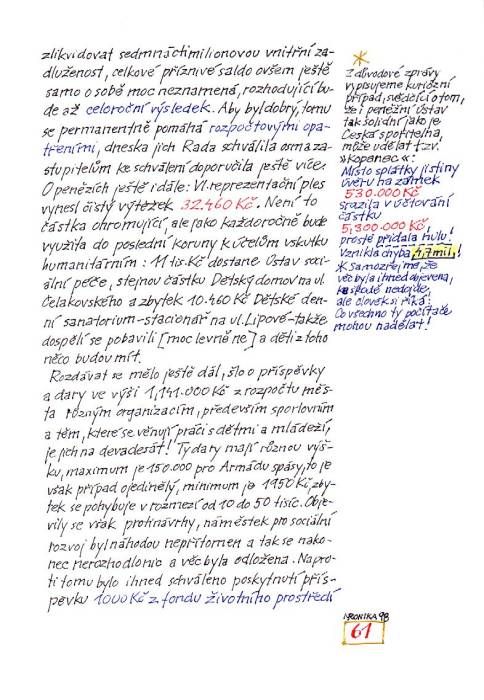 zlikvidovat sedmnáctimilionovou vnitřní za-
dluženost, celkové příznivé saldo ovšem ještě
samo o sobě moc neznamená, rozhodující bu-
de až celoroční výsledek. Aby byl dobrý, tomu
se permanentně pomáhá rozpočtovými opa-
třeními, dneska jich Rada schválila osm a za-
stupitelům ke schválení doporučila ještě více.
O penězích ještě i dále: VI. reprezentační ples
vynesl čistý výtěžek 32.460 Kč. Není to
částka ohromující, ale jako každoročně bude
využita do poslední koruny k účelům vskutku
humanitárním: 11 tis. Kč dostane Ústav soci-
ální péče, stejnou částku Dětský domov na ul.
Čelakovského a zbytek 10.460 Kč Dětské den-
ní sanatorium-stacionář na ul. Lipové-takže
dospělí se pobavili [moc levně ne] a děti z toho
něco budou mít.
Rozdávat se mělo ještě dál, šlo o příspěvky
a dary ve výši 1,141.000 Kč z rozpočtu měs-
ta různým organizacím, především sportovním
a těm, které se věnují práci s dětmi a mládeží,
je jich na devadesát! Ty dary mají různou výš-
ku, maximum je 150.000 pro Armádu spásy, to je
však případ ojedinělý, minimum je 1950 Kč, zby-
tek se pohybuje v rozmezí od 10 do 50 tisíc. Obje-
vily se však protinávrhy, náměstek pro sociální
rozvoj byl náhodou nepřítomen a tak se nako-
nec nerozhodlo nic a věc byla odložena. Napro-
ti tomu bylo ihned schváleno poskytnutí přís-
pěvku 1000 Kč z fondu životního prostředí
Z důvodové zprávy
vypisujeme kuriózní
případ, svědčící o tom,
že i peněžní ústav
tak solidní jako je
Česká spořitelna,
může udělat tzv.
»kopanec«:
Místo splátky jistiny
úvěru na zámek
530.000 Kč
srazila v účtování
částku
5,300.000 Kč,
prostě přidala nulu!
Vznikla chyba 4,7 mil.!
* Samozřejmě, že
věc byla ihned objevena,
ke škodě nedojde,
ale člověk si říká:
Co všechno ty počítače
mohou nadělat!
KRONIKA 98
61